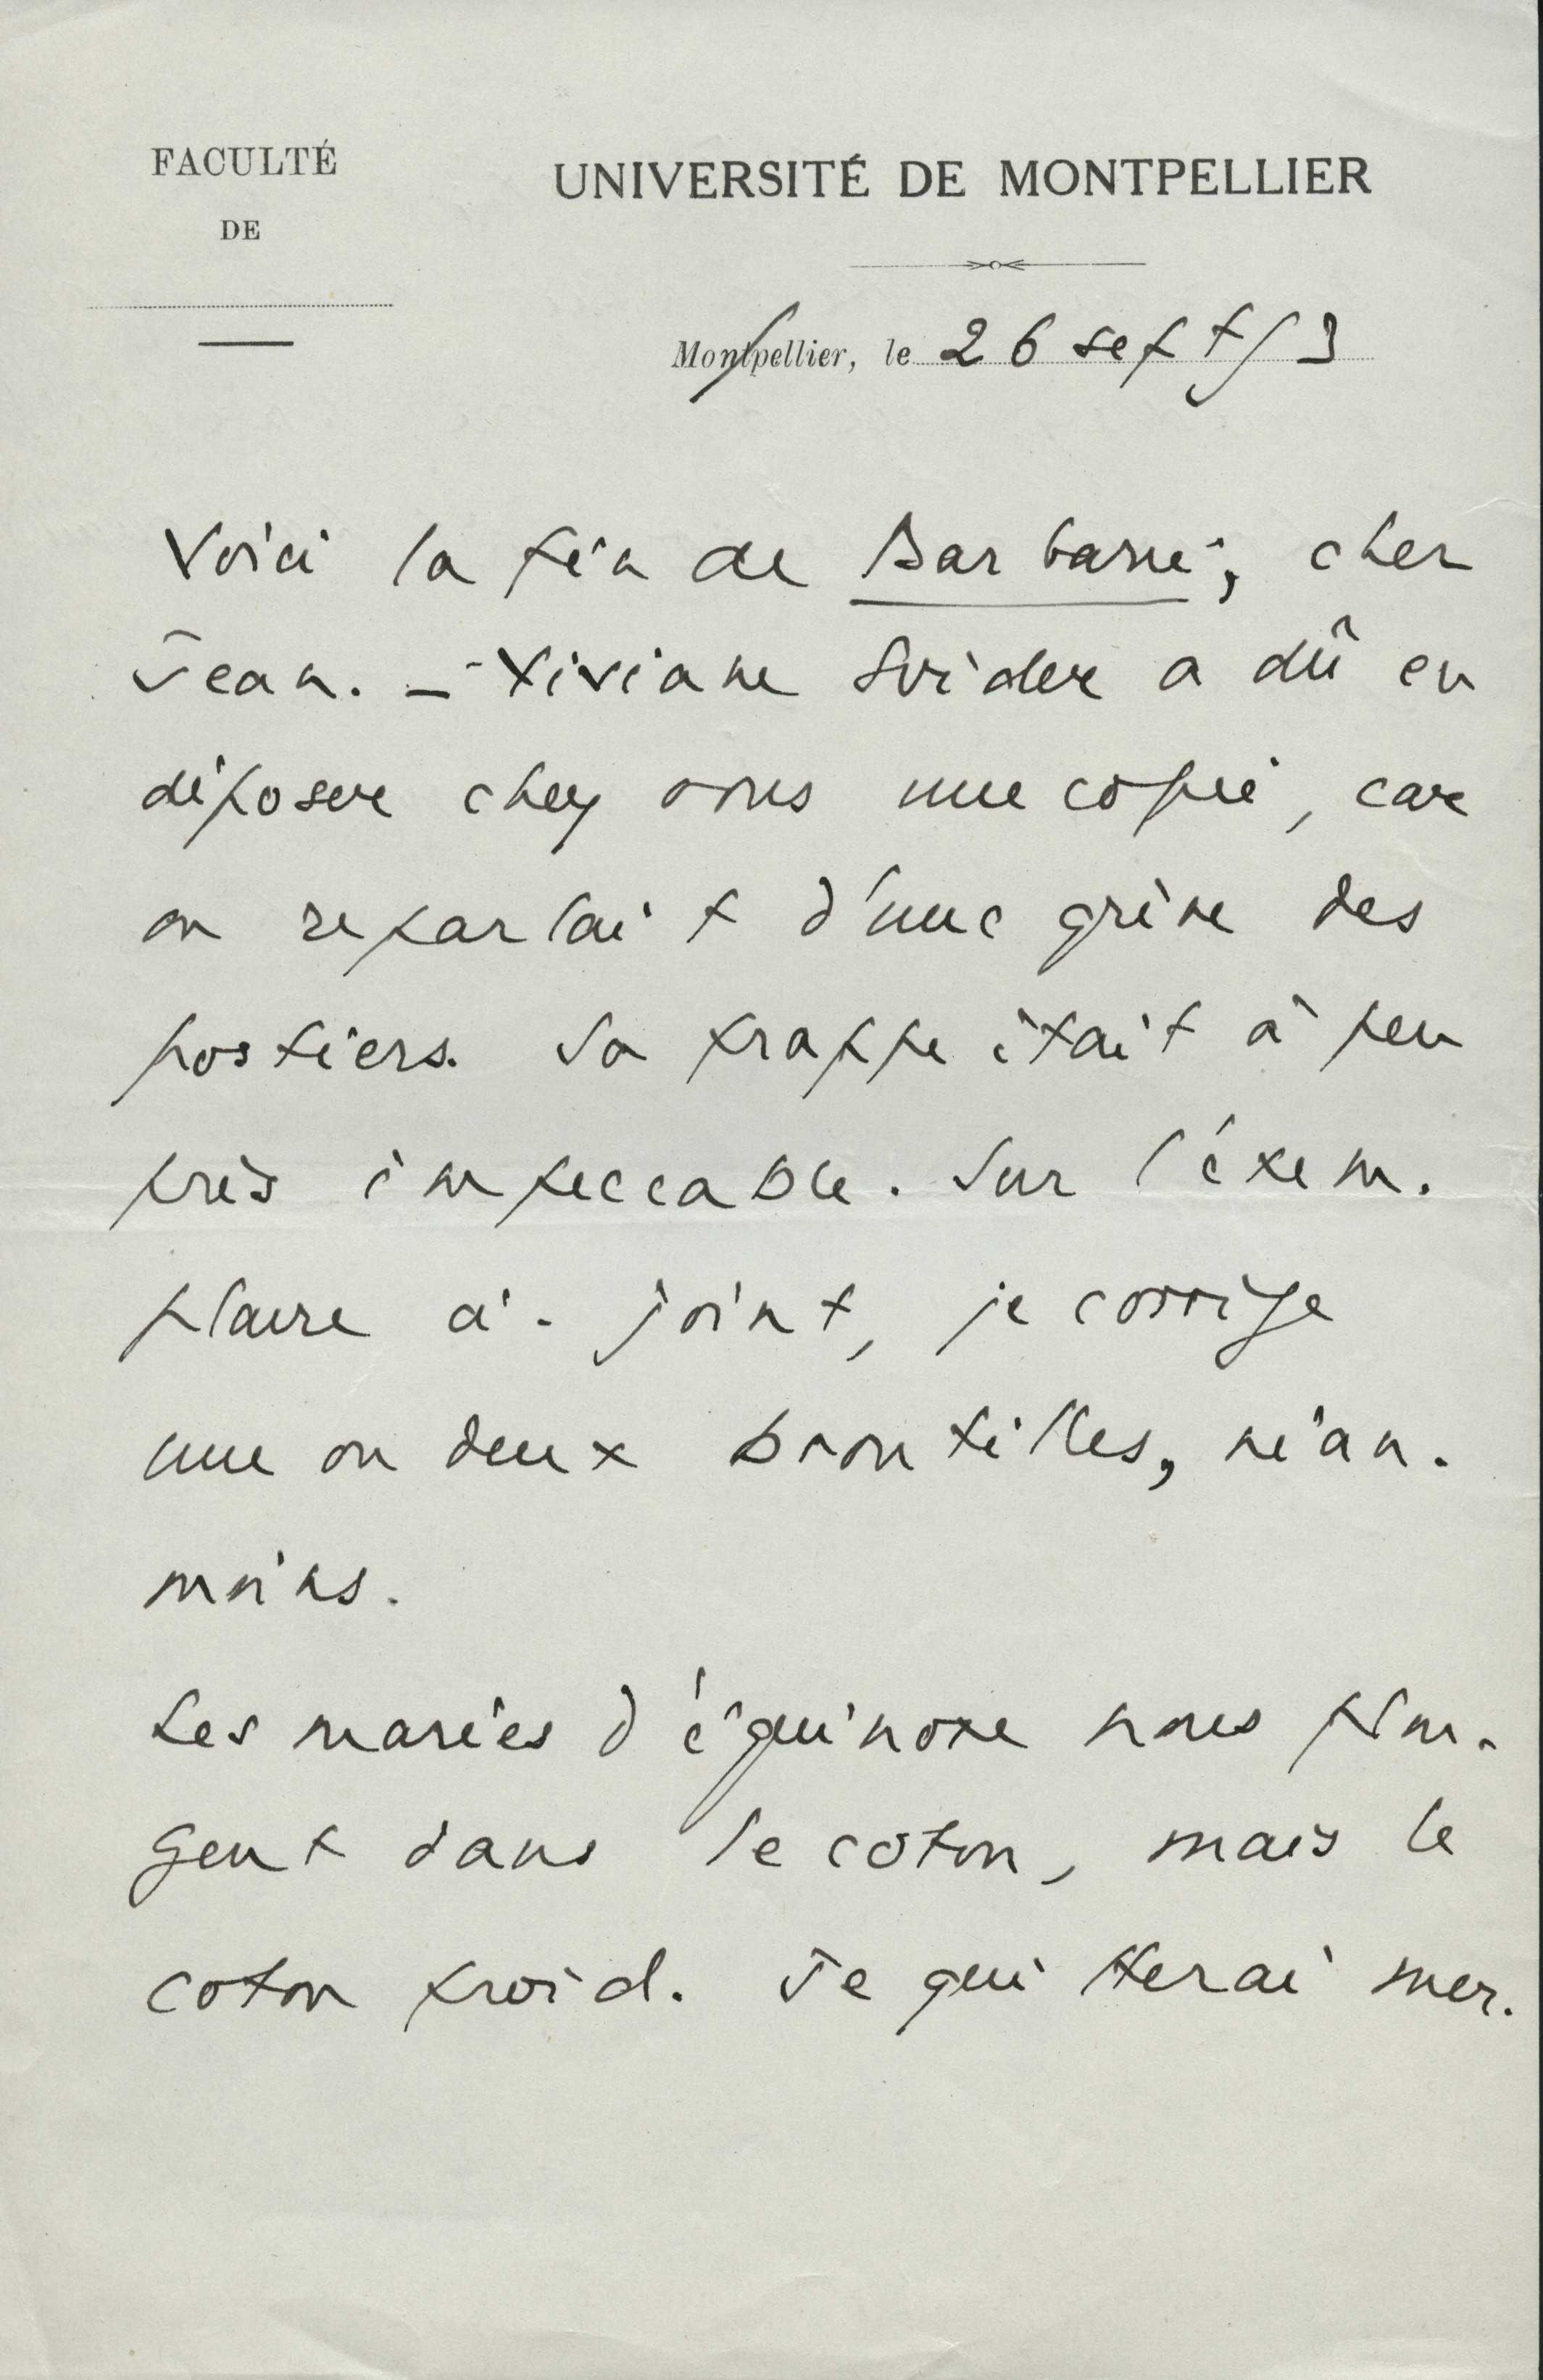 FACULTÉ
DE
UNIVERSITÉ DE MONTPELLIER
Montpellier, le 26 sept 53
Voici la fin de Barbarie, cher
Jean. – Viviane a dû en
déposer chez vous une copie, car
on reparlait d'une grève des
postiers. Sa frappe était à peu
près impeccable. Sur l'exem-
plaire ci-joint, je corrige
une ou deux broutilles, néan-
moins.
Les marées d'équinoxe nous plon-
gent dans le coton, mais le
coton froid. Je quitterai mer-